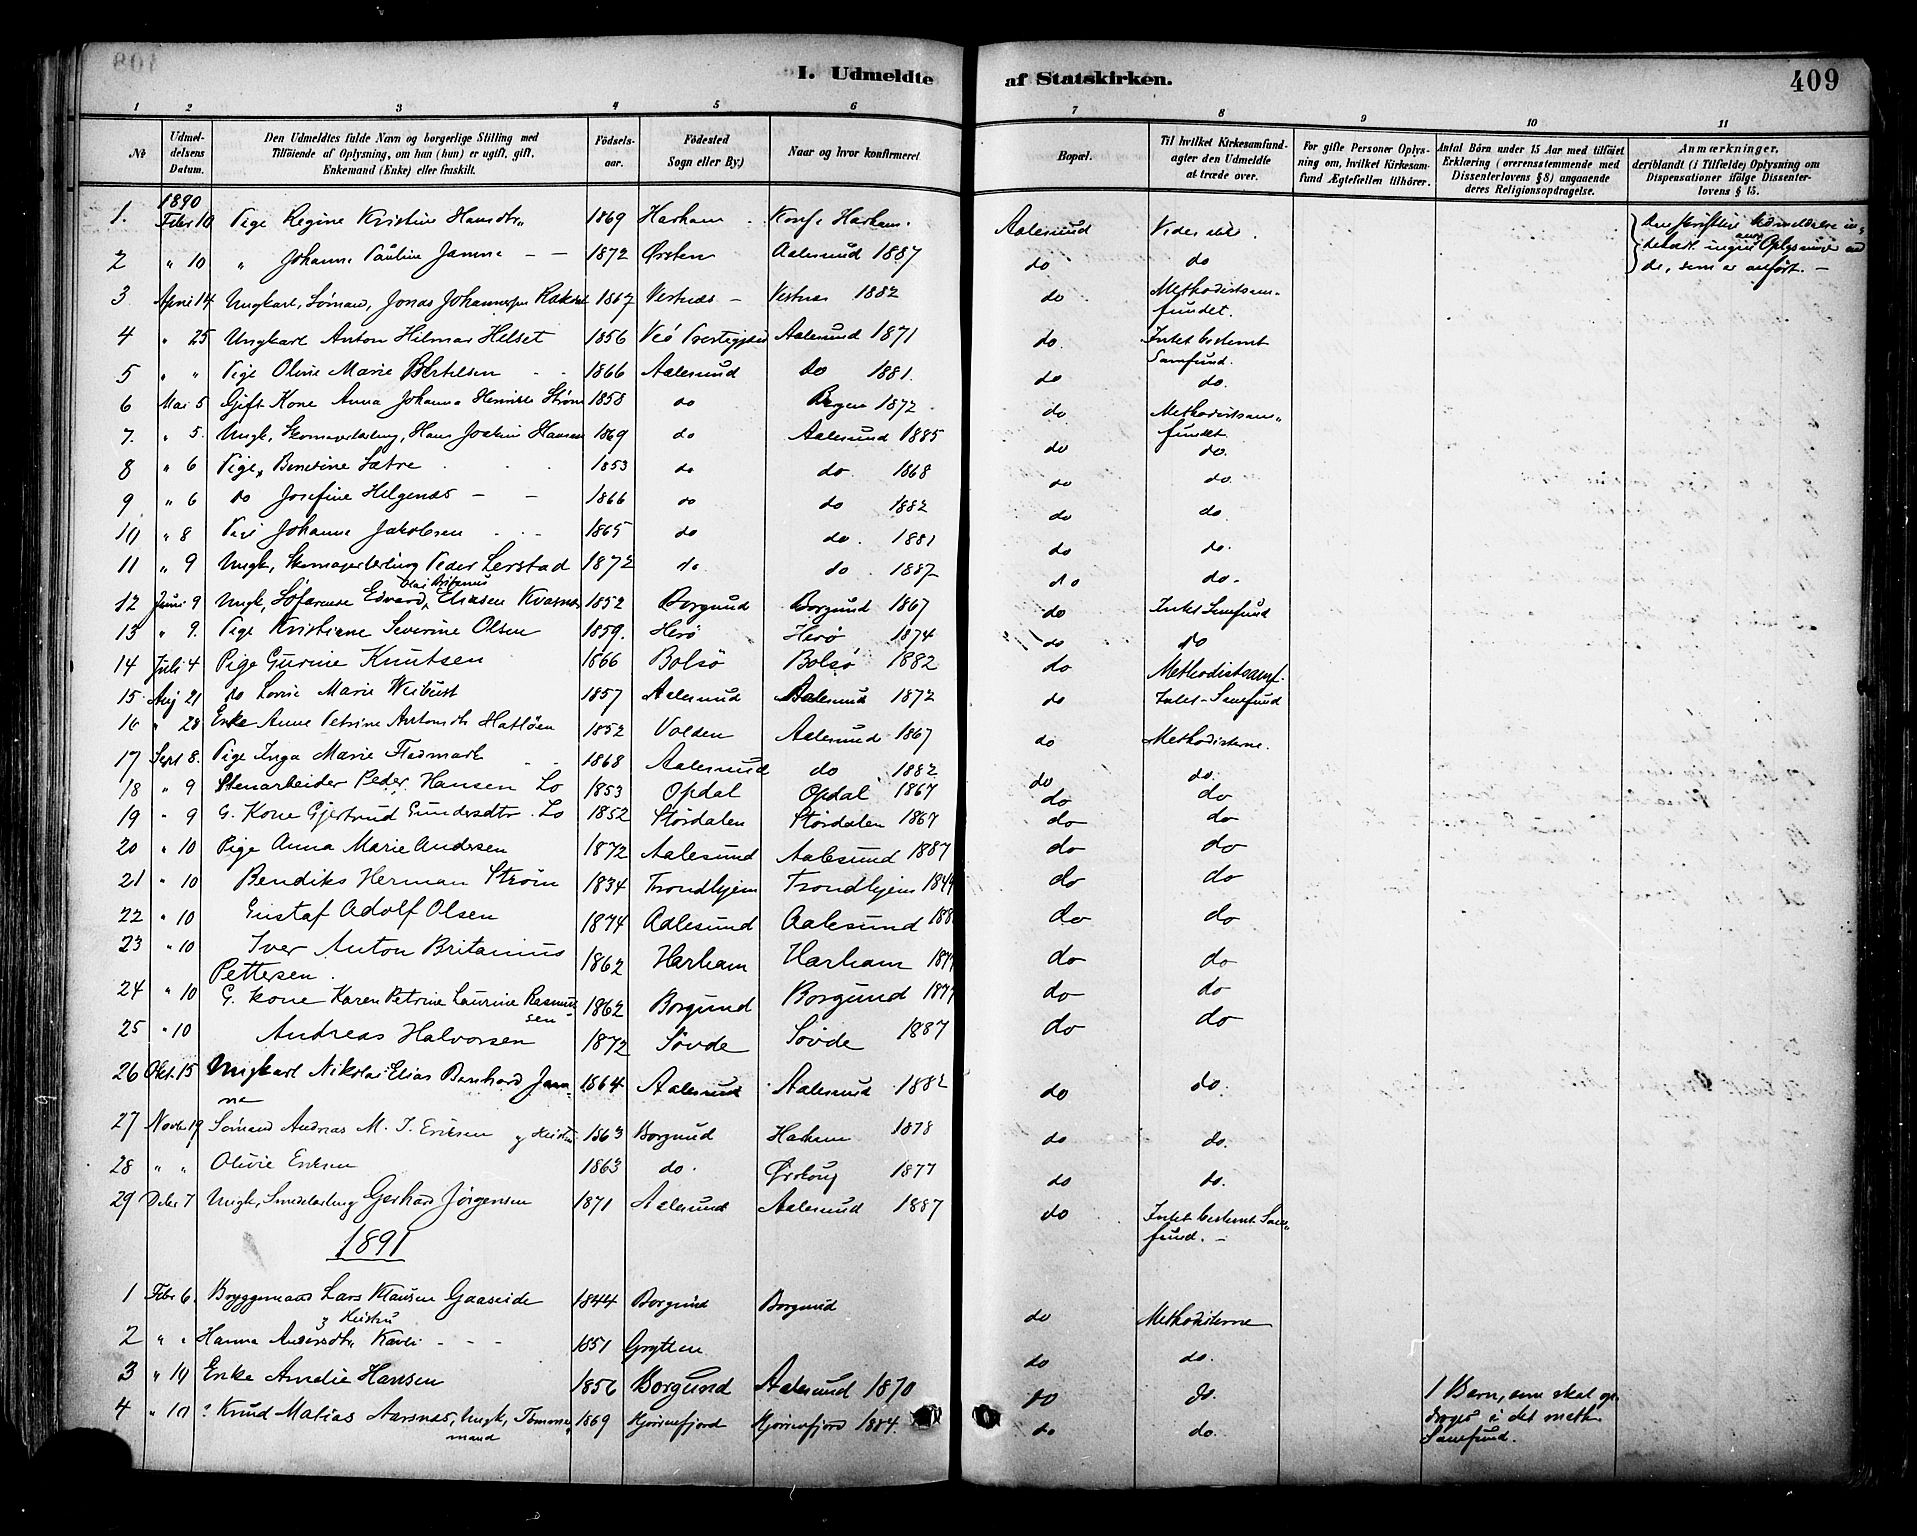 I. Udmeldte af Statskirken. 409
1 2 3 4 5 6 7 8 9 10 11
No Udmeldelsens Datum. Den Udmeldtes fulde Navn og borgerlige Stilling med Tilføiende af Oplysning, om han (hun) er ugift, gift, Enkemand (Enke) eller fraskilt. Fødselsaar. Fødested Sogn eller By) Naar og hvor konfirmeret Bopæl. Til hvilket Kirkesamfund agter den Udmeldte at træde over. For gifte Personer Oplysning om, hvilket Kirkesamfund Ægtefællen tilhører. Antal Børn under 15 Aar med tilføiet Erklæring (overensstemmende med Dissenterlovens § 8) angaaende deres Religionsopdragelse. Anmærkninger, deriblandt (i Tilfælde) Oplysning om Dispensationer ifølge Dissenterlovens § 15.
1890
1. Febr 10 Pige Regine Kristine Hansdtr. 1869 Harham Konf. i Harham. Aalesund
2 " 10 " Johanne Pauline Jamne — — 1872 Ørsten Aalesund 1887 do do de, som er anført. —
3 April 14 Ungkarl, Sømand, Jonas Johannesen 1867 Vestnæs — Vestnæs 1882 do Methodistsamfundet.
4 " 25 Ungkarl Anton Hilmar Helset 1856 Veø Aalesund 1871 do Intet bestemt Samfund.
5 " " Pige Oline Marie Bertelsen 1866 Aalesund do 1881. do do.
6 Mai 5 Gift Kone Anna Johanna Strøm 1858 do Bergen 1872 do Methodistsamfundet
7. " 5. Ungk, Hans Joakim Hansen 1869 do Aalesund 1885 do do.
8 " 6 Pige, Bendine Sætre 1853 do do 1868 do do.
9 " 6 do Josefine Helgenæs — — 1866 do do 1882 do do.
10 " 8 Pige Johanne Jakobsen 1865 do do. 1881 do do.
11 " 9 Ungk, Skomagerlærling Peder Lerstad 1872 do. do 1887 do do.
12 Juni 9 Ungk, Edvard Eliasen Kvasnes 1852 Borgund Borgund 1867 do Intet Samfund
13 " 9. Pige Kristiane Severine Olsen 1859. Herø Herø 1874 do do
14 Juli 4 Pige Gurine Knutsen 1866 Bolsø Bolsø 1882 do Methodistsamf.
15 Aug 21 do Marie Weibust 1857 Aalesund Aalesund 1872 do Intet Samfund
16 " 28 Enke Anne Petrine Antonsdtr Hatløen 1852 Volden Aalesund 1867 do Methodisterne.
17 Sept 8. Pige Inga Marie Fladmark 1868 Aalesund do 1882 do do.
18 " 9 Stenarbeider Peder Hansen Lo 1853 Opdal Opdal 1867 do do
19 " 9 G. Kone Gjertrud Gundersdtr. Lo 1852 Størdalen Størdalen 1867 do do
20 " 10 Pige Anna Marie Andersen 1872 Aalesund Aalesund 1887 do do
21 " 10 Bendiks Herman Strøm 1834 Trondhjem Trondhjem do do
22 " 10 Gustaf Adolf Olsen 1874 Aalesund Aalesund do do
23 " 10 Iver Anton Britanius Pettersen. 1862 Harham Harham do do
24 " 10 G. Kone Karen Petrine Laurine Rasmussen 1862 Borgund Borgund do do
25 " 10 Andreas Halvorsen 1872 Søvde Søvde 1887 do do
26 Okt. 15 Ungkarl Nikolai Elias Bernhard Jamne 1864 Aalesund Aalesund 1882 do do.
27 Novb. 19 Sømand Andreas M. J. Eriksen g Hustru 1863 Borgund Harham 1878 do do.
28 " " Olivie Eriksen 1863 do. Ørskoug 1877 do do.
29 Decbr 7 Ungk, Gerhard Jørgensen 1871 Aalesund Aalesund 1887 do Intet bestemt Samfund. —
1891
1 Febr 6. Bryggemand Lars Klausen Gaaseide 1844 Borgund Borgund do Methodisterne
g Hustru
2 " " Hanna Andersdtr. — — 1851 Grytten do do.
3 " 10 Enke Amelie Hansen 1856 Borgund Aalesund 1870 do do. 1 Barn, som skal opdrages i det meth. Samfund.
4 " 10 Knud Matias Aarsnes, Ungk, Tømmermand 1869 Hjørinefjord Hjørinefjord 1884. do do.